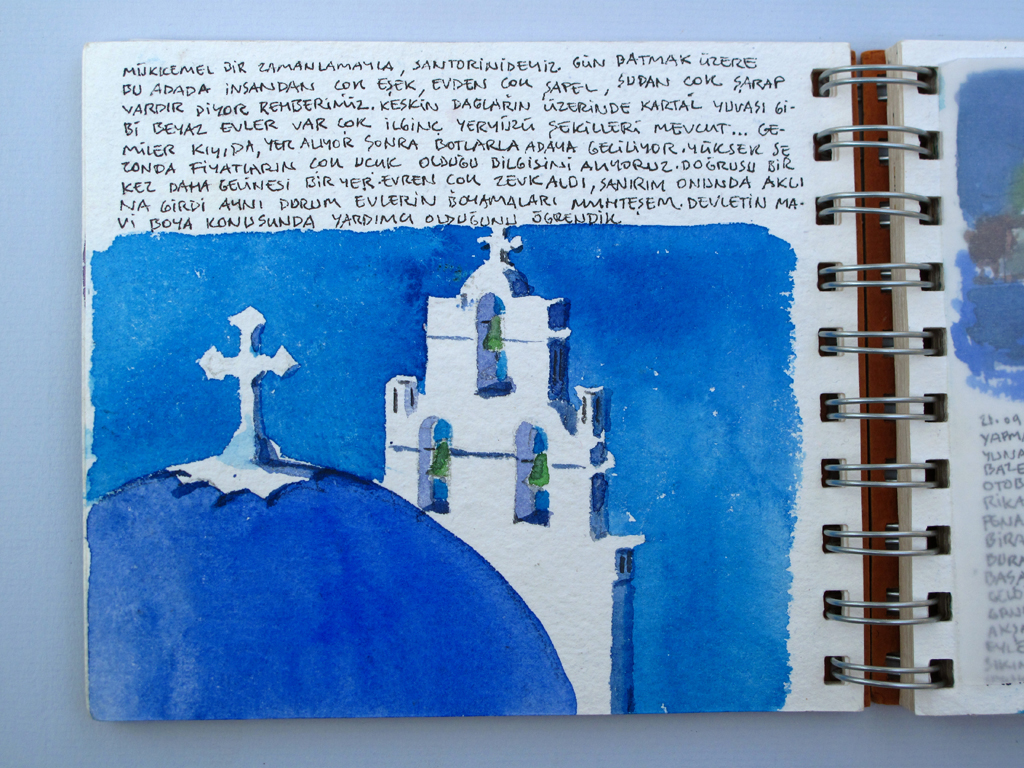 MÜKKEMEL BİR ZAMANLAMAYLA, SANTORİNİDEYİZ. GÜN BATMAK ÜZERE
BU ADADA İNSANDAN ÇOK EŞEK, EVDEN ÇOK ŞAPEL, SUDAN ÇOK ŞARAP
VARDIR DİYOR REHBERİMİZ. KESKİN DAĞLARIN ÜZERİNDE KARTAL YUVASI Gİ-
Bİ BEYAZ EVLER VAR ÇOK İLGİNÇ YERYÜZÜ ŞEKİLLERİ MEVCUT... GE-
MİLER KIYIDA, YER ALIYOR SONRA BOTLARLA ADAYA GELİLİYOR. YÜKSEK SE
ZONDA FİYATLARIN ÇOK UCUK OLDUĞU BİLGİSİNİ ALIYORUZ. DOĞRUSU BİR
KEZ DAHA GELİNESİ BİR YER. EVREN ÇOK ZEVK ALDI, SANIRIM ONUNDA AKLI
NA GİRDİ AYNI DURUM EVLERİN BOYAMALARI MUHTEŞEM. DEVLETİN MA-
Vİ BOYA KONUSUNDA YARDIMCI OLDUĞUNU ÖĞRENDİK
21.09
YAPMA
YUNA
BAZE
OTOB